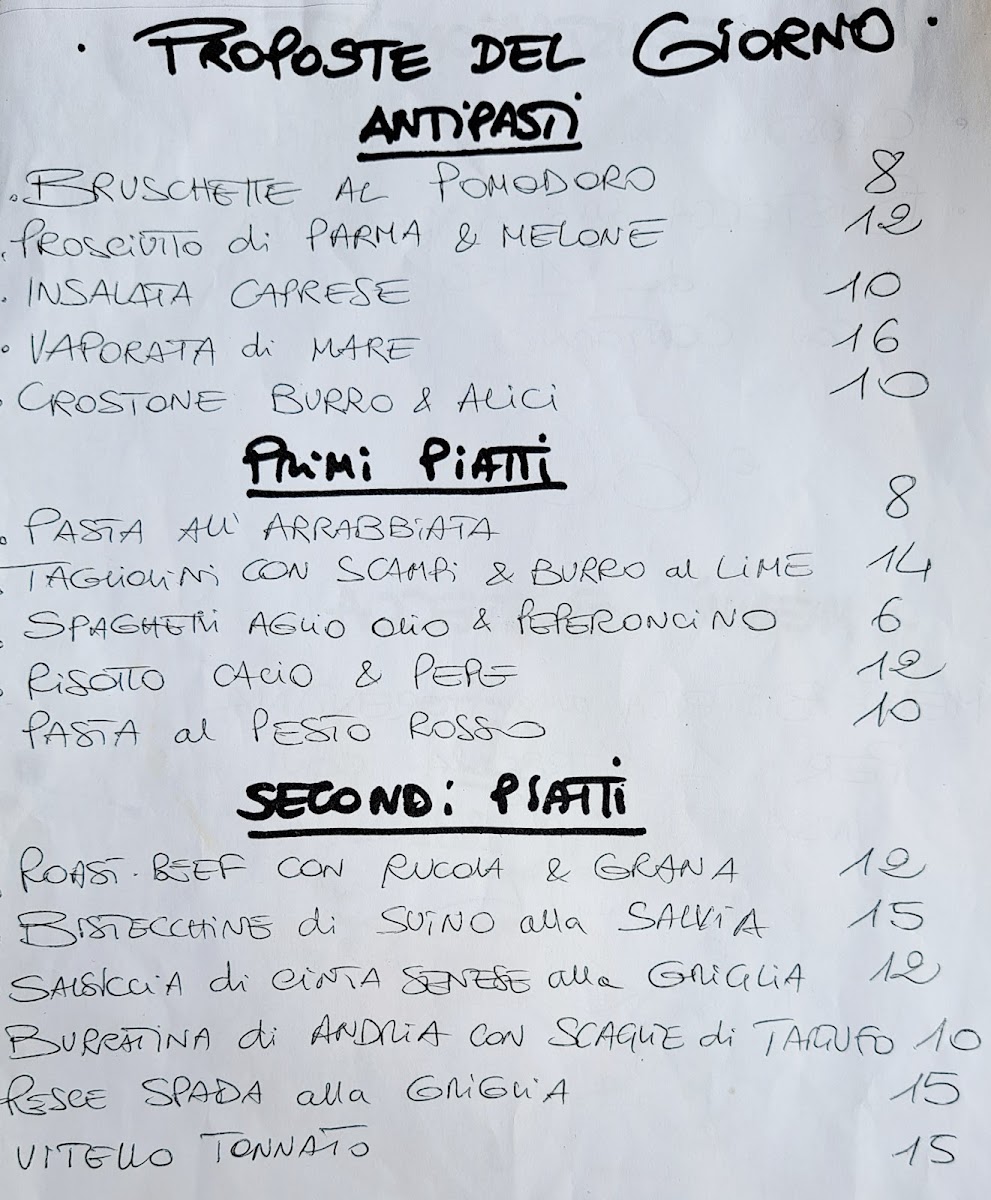 · PROPOSTE DEL GIORNO ·
ANTIPASTI
. BRUSCHETTE AL POMODORO 8
. PROSCIUTTO di PARMA & MELONE 12
. INSALATA CAPRESE 10
. VAPORATA di MARE 16
. CROSTONE BURRO & ALICI 10
PRIMI PIATTI
. PASTA ALL' ARRABBIATA 8
. TAGLIOLINI CON SCAMPI & BURRO al LIME 14
. SPAGHETTI AGLIO OLIO & PEPERONCINO 6
. RISOTTO CACIO & PEPE 12
PASTA al PESTO ROSSO 10
SECONDI PIATTI
. ROAST-BEEF CON RUCOLA & GRANA 12
BISTECCHINE di SUINO alla SALVIA 15
SALSICCIA di CINTA SENESE alla GRIGLIA 12
BURRATINA di ANDRIA CON SCAGLIE di TARTUFO 10
PESCE SPADA alla GRIGLIA 15
VITELLO TONNATO 15